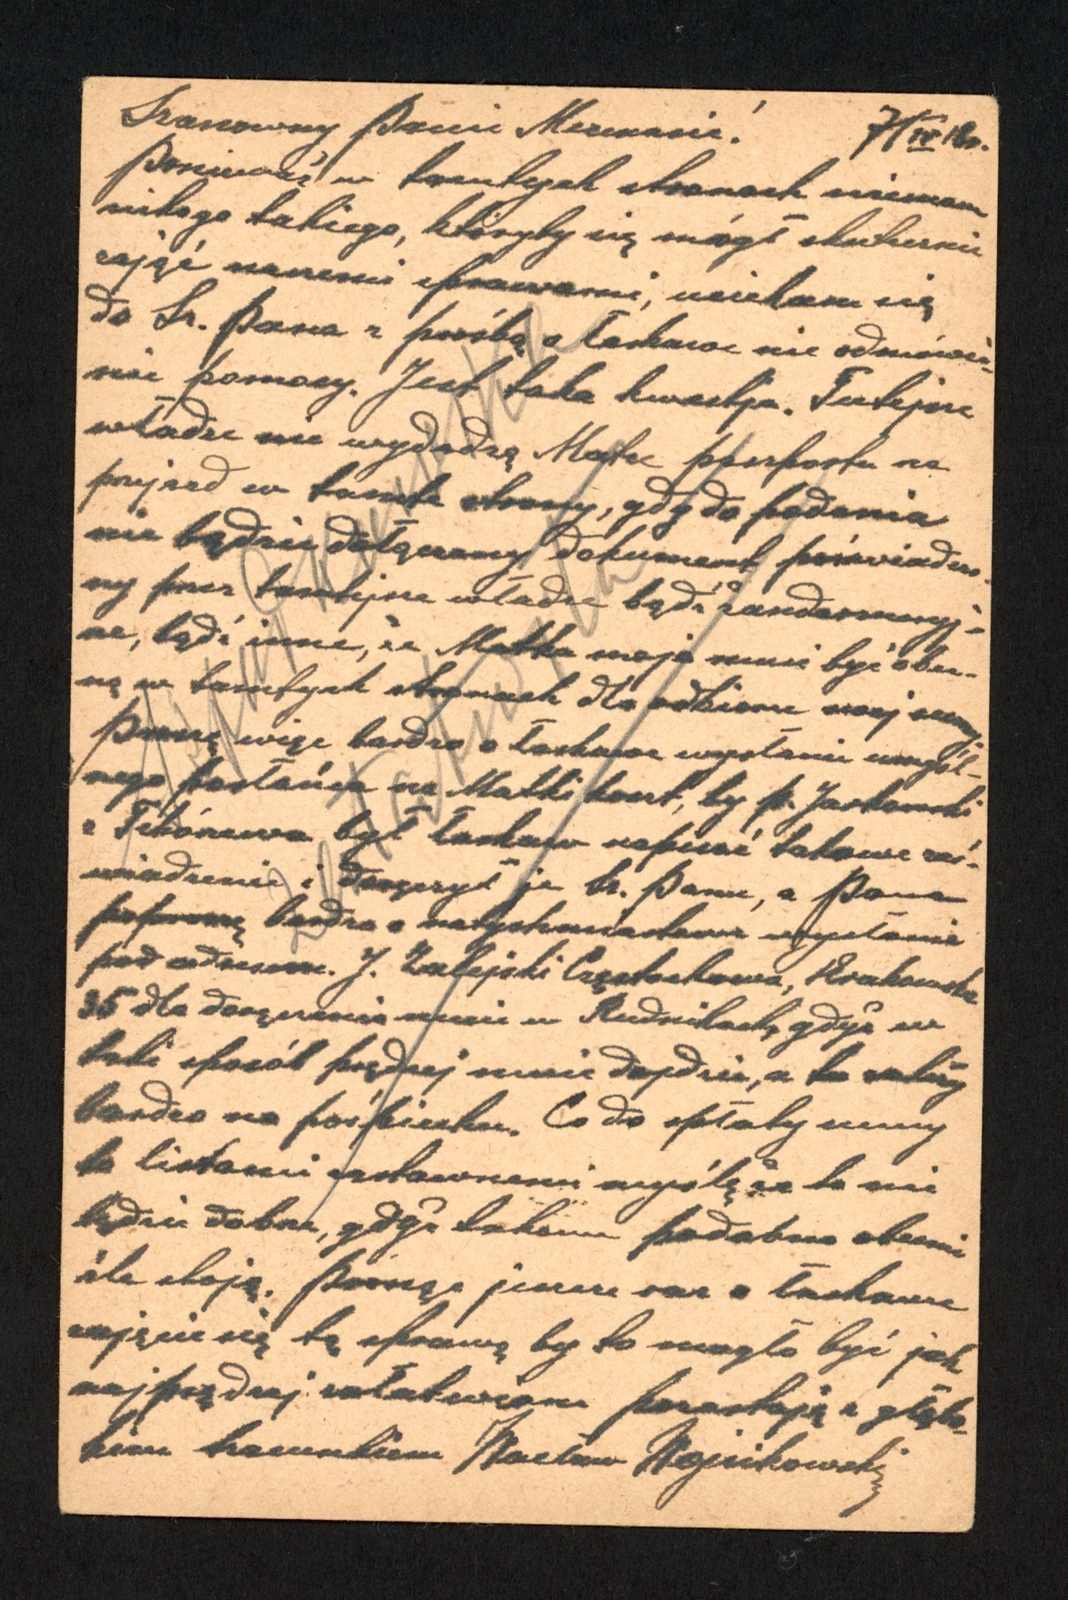 Szanowny Panie Mecenasie! 7/IV 18r.
Ponieważ w tamtych stronach niemam
nikogo takiego, któryby się mógł skutecznie
zająć naszemi sprawami, uciekam się
do Sz. Pana z prośbą o łaskawe nie odmówie-
nie pomocy. Jest taka kwestja. Tutejsze
władze nie wydadzą Matce paszportu na
przejazd w tamte strony, gdy do podania
nie będzie dołączony dokument poświadczo-
ny przez tamtejsze władze bądź żandarmeryj-
ne, bądź inne, że Matka moja musi być obec-
ną w tamtych stronach dla odbioru swej sumy
Proszę więc bardzo o łaskawe wysłanie umyśl-
nego posłańca na Matki koszt, by p. Jackowski
z był łaskaw napisać takowe zaś-
wiadczenie i doręczył je Sz. Panu, a Pana
poproszę bardzo o natychmiastowe wysłanie
pod adresem. J. Zalejski Częstochowa, Krakowska
35 dla doręczenia mnie w Rudnikach, gdyż w
taki sposób prędzej mnie dojdzie, a to zależy
bardzo na pośpiechu. Co do spłaty sumy
to listami zastawnemi myślę że to nie
będzie dobre, gdyż takowe podobno obecnie
źle stoją. Proszę jeszcze raz o łaskawe
zajęcie się tą sprawą by to mogło być jak
najprędzej załatwione pozostaję z głębo-
kim szacunkiem Wacław Wojcikowski